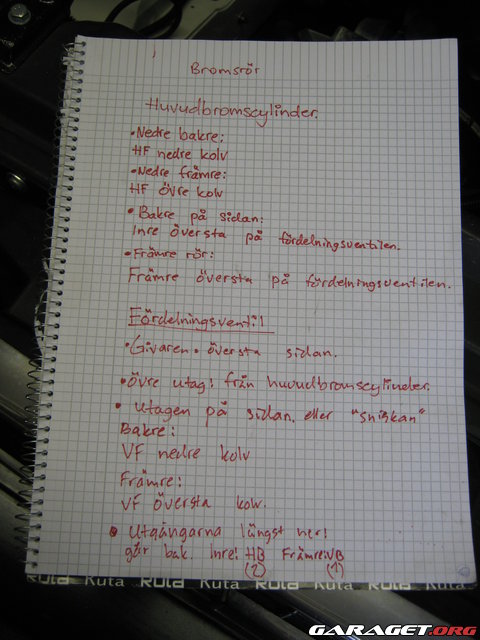 Bromsrör
Huvudbromscylinder.
• Nedre bakre:
HF nedre kolv
• Nedre främre:
HF övre kolv
• Bakre på sidan:
Inre översta på fördelningsventilen.
• Främre rör:
Främre översta på fördelningsventilen.
Fördelningsventil
• Givaren • översta sidan.
• Övre utag: från huvudbromscylinder.
• Utagen på sidan. eller "snibban"
Bakre:
VF nedre kolv
Främre:
VF översta kolv.
• Utgångarna längst ner!
går bak. Inre: HB Främre: VB
(2) (1)
Rula Kuta Rula Kuta Rula Kuta Rula
GARAGET.ORG